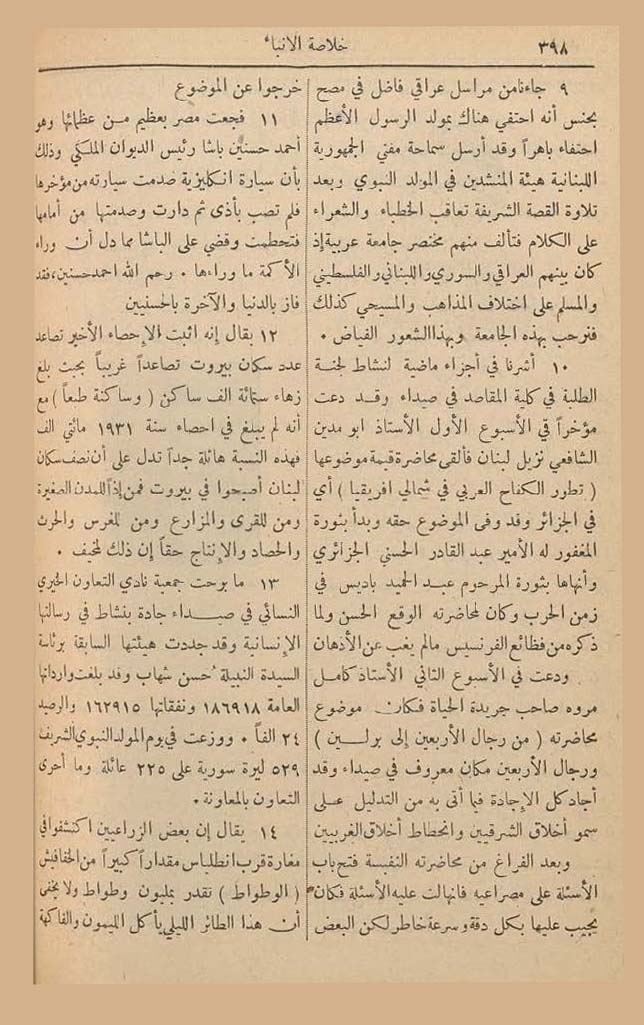 ٣٩٨
خلاصة الانباء
٩ جاءنا من مراسل عراقي فاضل في مصح
بجنس أنه احتفي هناك بمولد الرسول الأعظم
احتفاء باهراً وقد أرسل سماحة مفتي الجمهورية
اللبنانية هيئة المنشدين في المولد النبوي وبعد
تلاوة القصة الشريفة تعاقب الخطباء والشعراء
على الكلام فتألف منهم مختصر جامعة عربية إذ
كان بينهم العراقي والسوري واللبناني والفلسطيني
والمسلم على اختلاف المذاهب والمسيحي كذلك
فنرحب بهذه الجامعة وبهذا الشعور الفياض ٠
١٠ أشرنا في أجزاء ماضية لنشاط لجنة
الطلبة في كلية المقاصد في صيداء وقد دعت
مؤخراً في الأسبوع الأول الأستاذ ابو مدين
الشافعي نزيل لبنان فألقى محاضرة قيمة موضوعها
( تطور الكفاح العربي في شمالي افريقيا ) أي
في الجزائر وقد وفى الموضوع حقه وبدأ بثورة
المغفور له الأمير عبد القادر الحسني الجزائري
وأنهاها بثورة المرحوم عبد الحميد باديس في
زمن الحرب وكان لمحاضرته الوقع الحسن ولما
ذكره من فظائع الفرنسيس مالم يغب عن الأذهان
ودعت في الأسبوع الثاني الأستاذ كامل
مروه صاحب جريدة الحياة فكان موضوع
محاضرته ( من رجال الأربعين إلى برلين )
ورجال الأربعين مكان معروف في صيداء وقد
أجاد كل الإجادة فيما أتى به من التدليل على
سمو أخلاق الشرقيين وانحطاط أخلاق الغربيين
وبعد الفراغ من محاضرته النفيسة فتح باب
الأسئلة على مصراعيه فانهالت عليه الأسئلة فكان
يجيب عليها بكل دقة وسرعة خاطر لكن البعض
خرجوا عن الموضوع
١١ فجعت مصر بعظيم من عظمائها وهو
أحمد حسنين باشا رئيس الديوان الملكي وذلك
بأن سيارة انكليزية صدمت سيارته من مؤخرها
فلم تصب بأذى ثم دارت وصدمتها من أمامها
فتحطمت وقضي على الباشا مما دل أن وراء
الأكمة ما وراءها ٠ رحم الله احمد حسنين، فقد
فاز بالدنيا والآخرة بالحسنيين
١٢ يقال إنه اثبت الإحصاء الأخير تصاعد
عدد سكان بيروت تصاعداً غريباً بحيث بلغ
زهاء ستمائة الف ساكن ( وساكنة طبعاً ) مع
أنه لم يبلغ في احصاء سنة ١٩٣١ مائتي الف
فهذه النسبة هائلة جداً تدل على أن نصف سكان
لبنان أصبحوا في بيروت فمن إذاً للمدن الصغيرة
ومن للقرى والمزارع ومن للغرس والحرث
والحصاد والإنتاج حقاً إن ذلك لمخيف ٠
١٣ ما برحت جمعية نادي التعاون الخيري
النسائي في صيداء جادة بنشاط في رسالتها
الإنسانية وقد جددت هيئتها السابقة برئاسة
السيدة النبيلة حسن شهاب وقد بلغت وارداتها
العامة ١٨٦٩١٨ ونفقاتها ١٦٢٩١٥ والرصيد
٢٤ الفاً ٠ ووزعت في يوم المولد النبوي الشريف
٥٢٩ ليرة سورية على ٢٢٥ عائلة وما أحرى
التعاون بالمعاونة ٠
١٤ يقال إن بعض الزراعيين اكتشفوا في
مغارة قرب انطلياس مقداراً كبيراً من الخفافيش
( الوطواط ) تقدر بمليون وطواط ولا يخفى
أن هذا الطائر الليلي يأكل الليمون والفاكهة